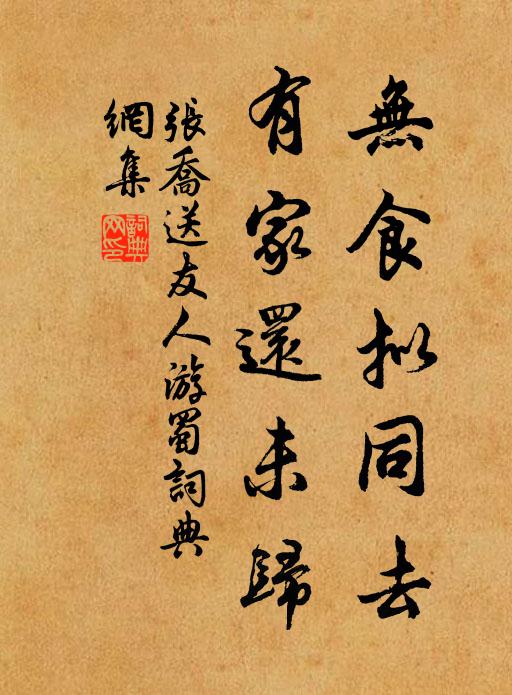 無食拟同去
有家還未歸
張喬送友人游蜀詞典
網集
詞典
网印